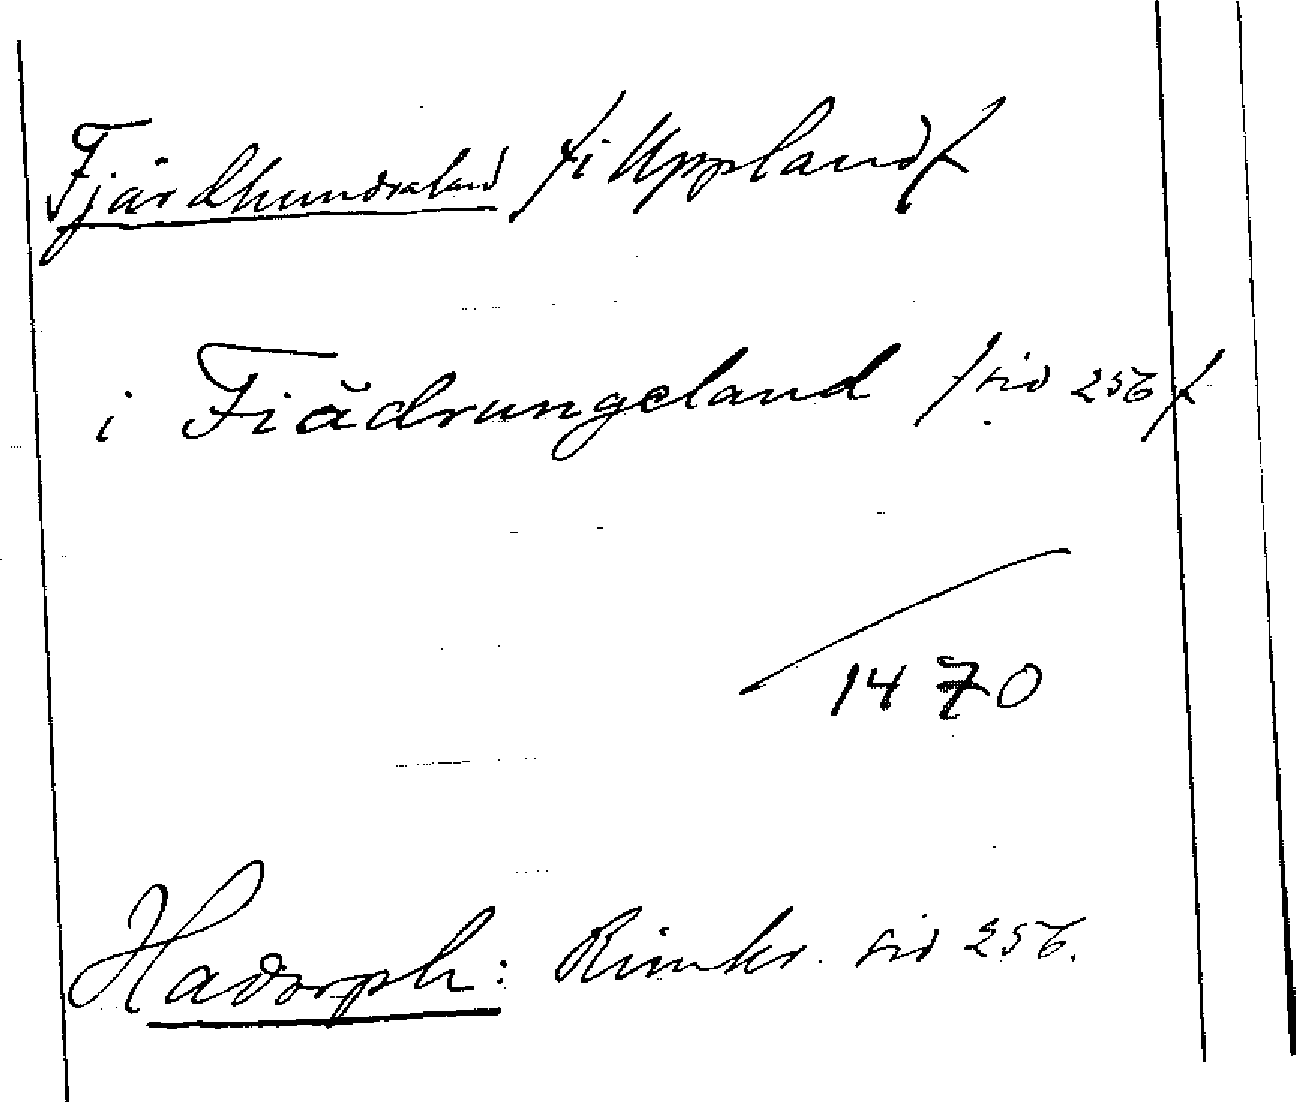 Fjärdhundraland /i Uppland/
i Fiädrungeland /sid 256/
1470
Hadorph: Rimkr. sid 256.